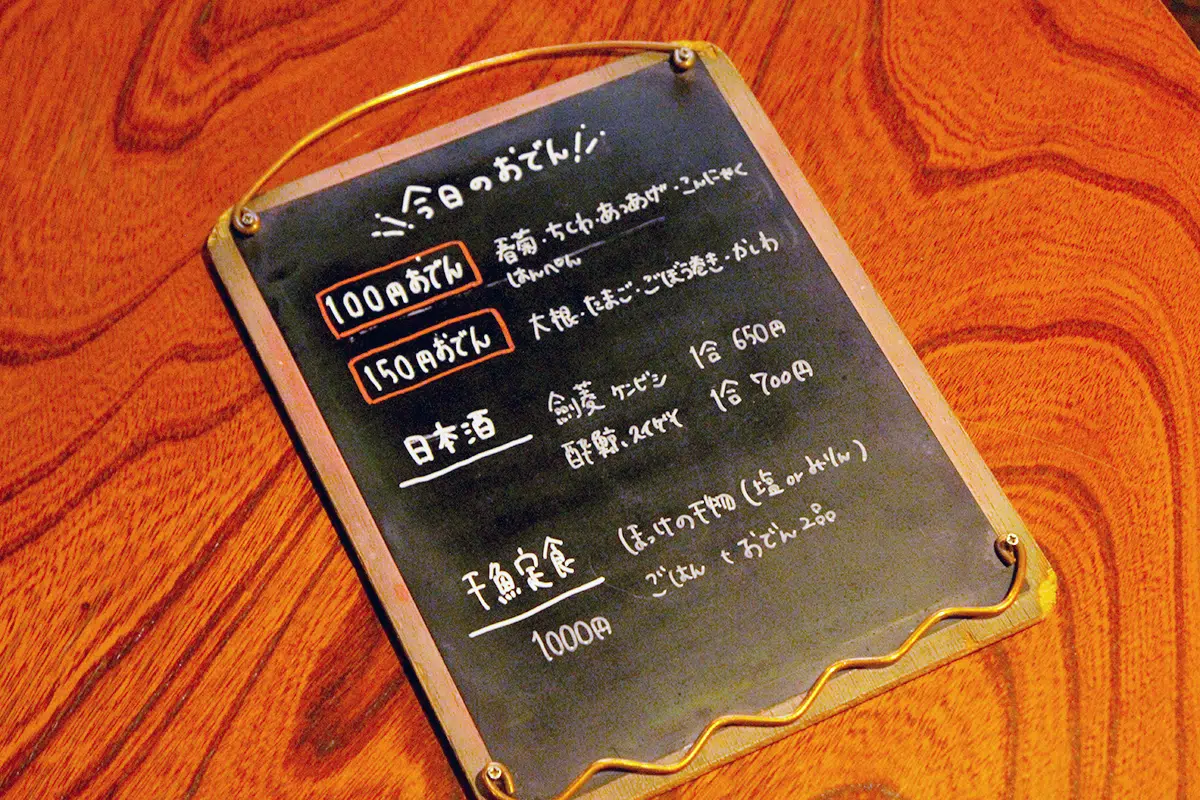 今日のおでん!
100円おでん 春菊・ちくわ・あつあげ・こんにゃく
はんぺん
150円おでん 大根・たまご・ごぼう巻き・かしわ
日本酒 劍菱 ケンビシ 1合 650円
酔鯨、スイゲイ 1合 700円
干魚定食 ほっけの干物(塩orみりん)
1000円 ごはん + おでん2品